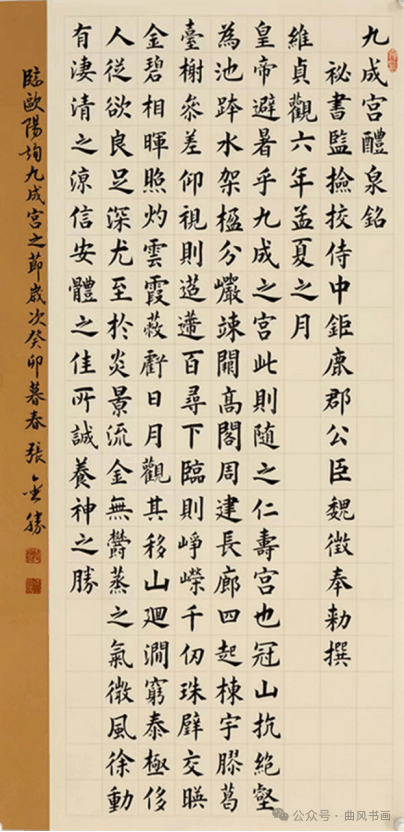 九成宮醴泉銘
祕書監撿挍侍中鉅鹿郡公臣魏徵奉勅撰
維貞觀六年孟夏之月
皇帝避暑乎九成之宮此則隨之仁壽宮也冠山抗絶壑
為池跨水架楹分巖竦闕高閣周建長廊四起棟宇膠葛
臺榭叅差仰視則迢遰百尋下臨則崢嶸千仞珠璧交暎
金碧相暉照灼雲霞蔽虧日月觀其移山廻澗窮泰極侈
人從欲良足深尤至於炎景流金無欝蒸之氣微風徐動
有淒清之涼信安體之佳所誠養神之勝
臨歐陽詢九成宮之節歲次癸卯暮春張金勝
公众号·曲风书画